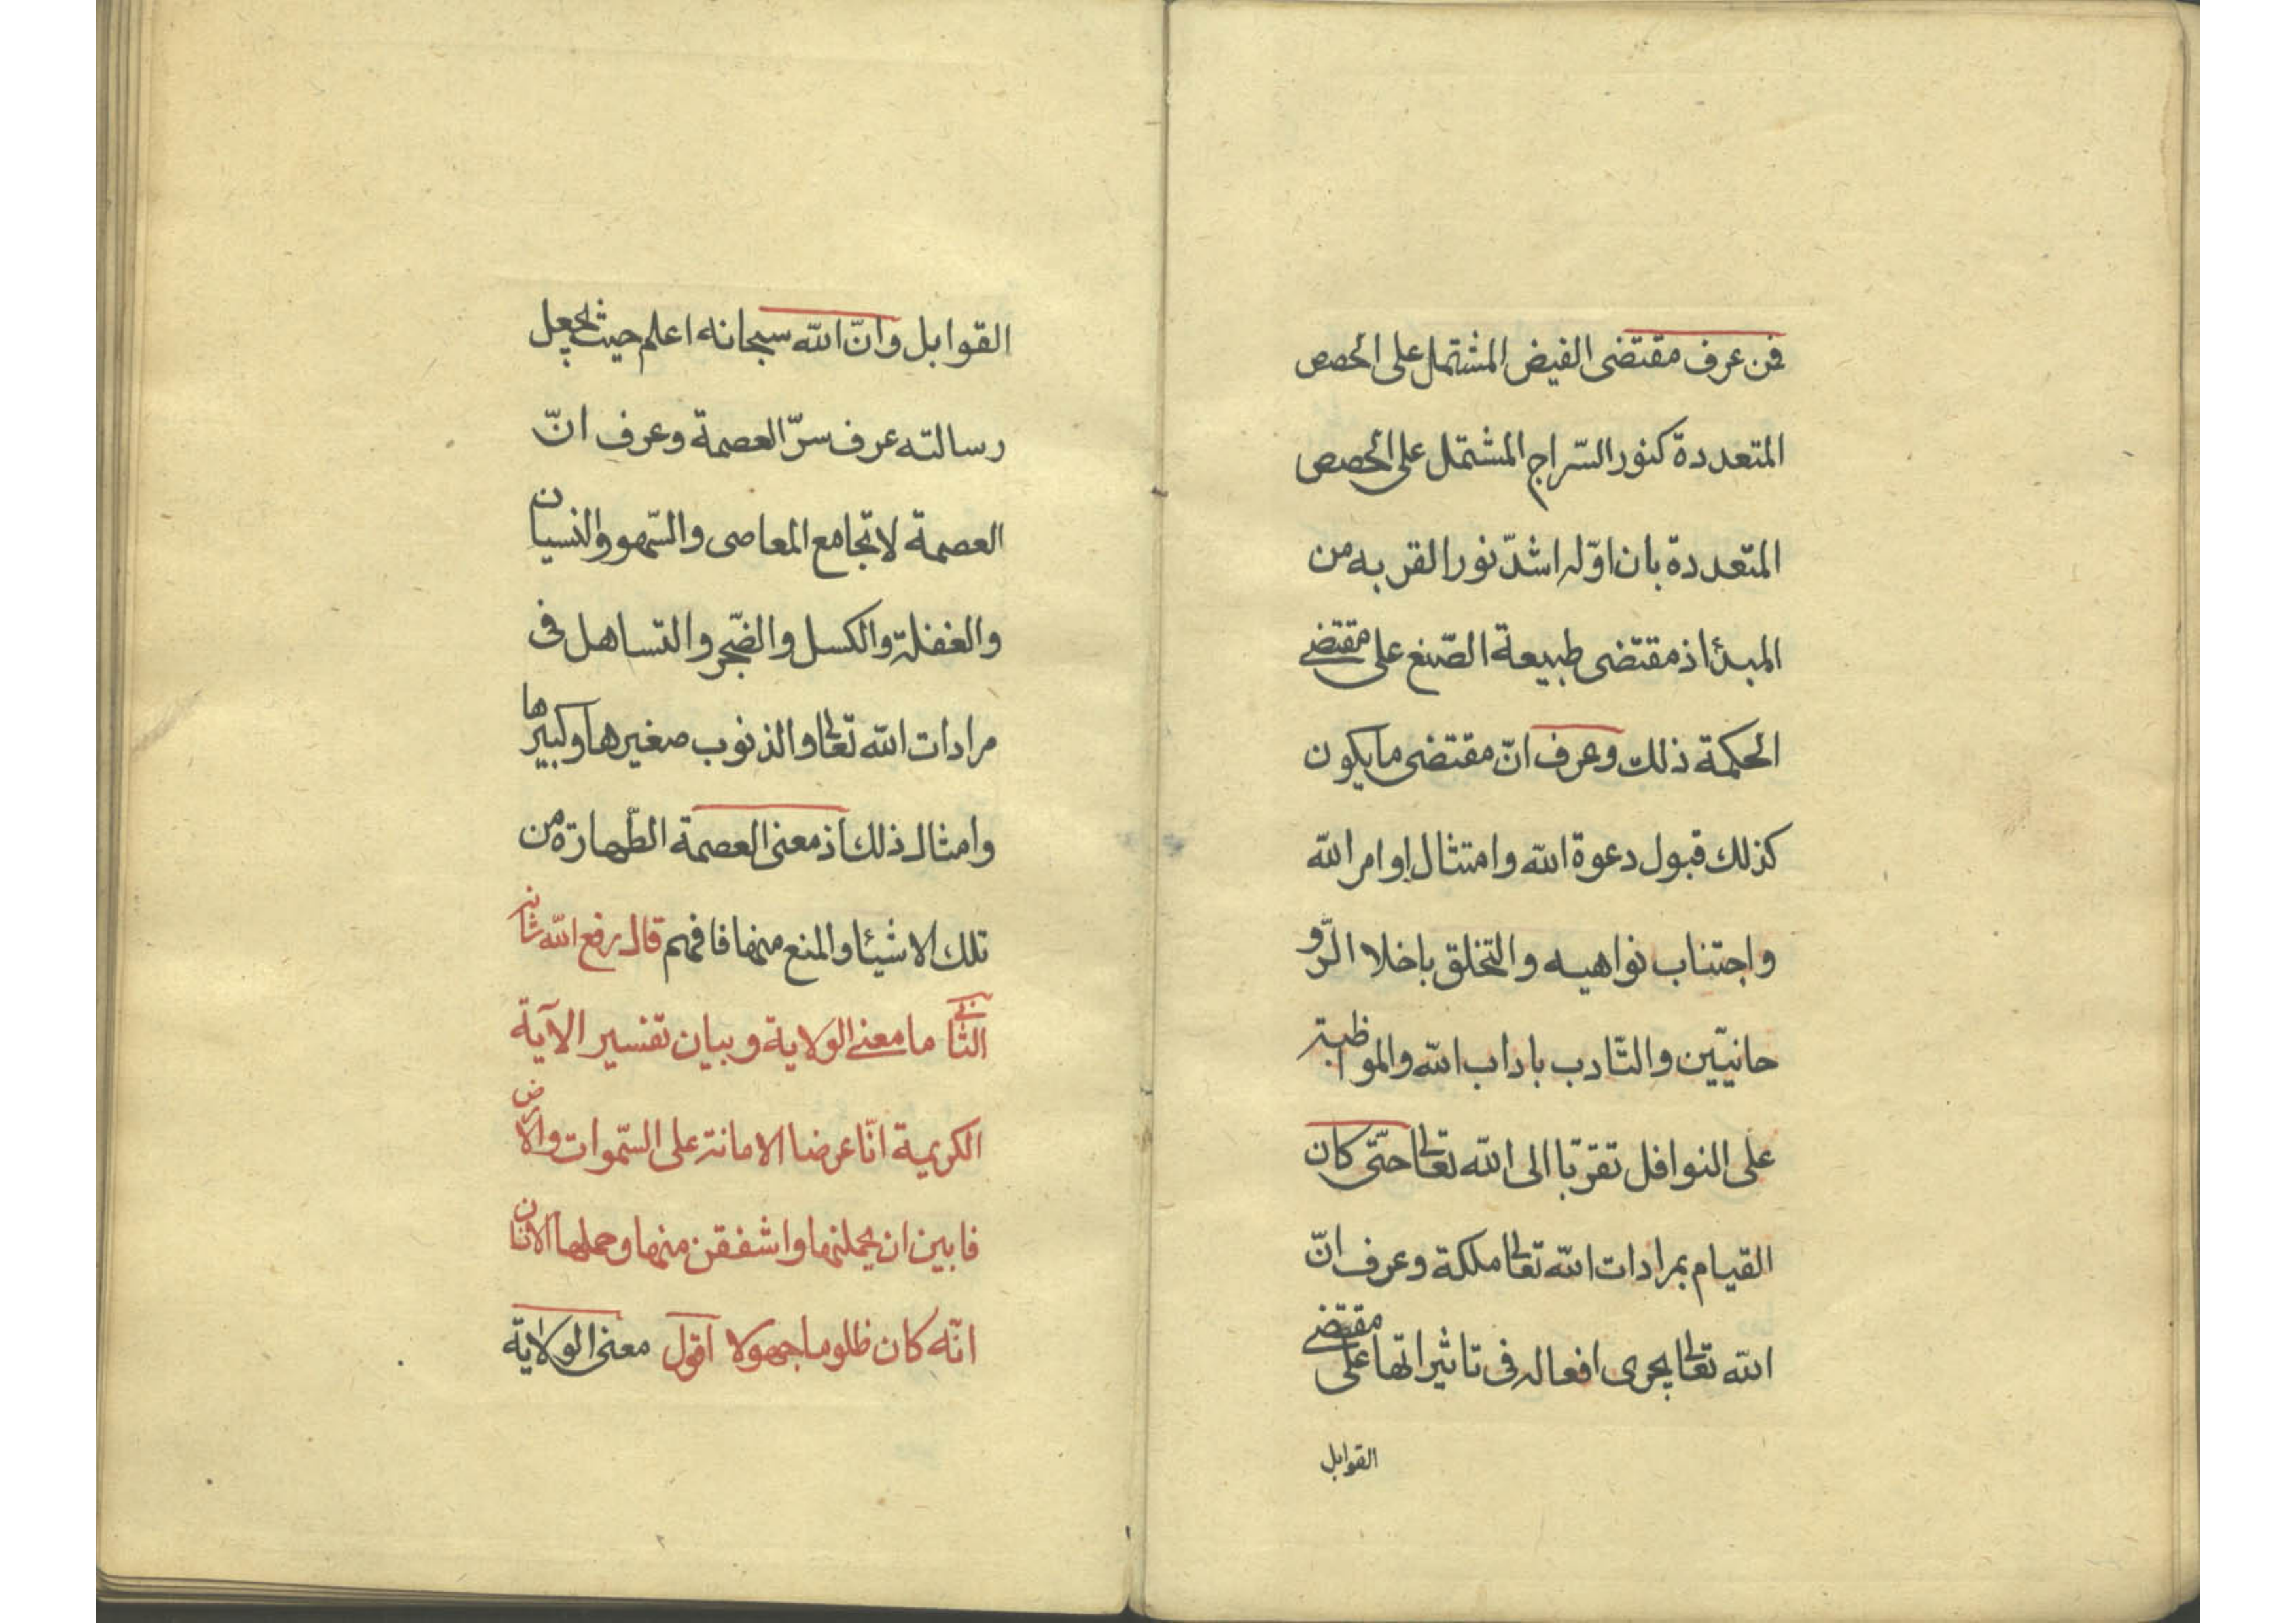 فمن عرف مقتضى الفيض المشتمل على الحصص
المتعددة كنور السّراج المشتمل على الحصص
المتعددة بان اوّله اشدّ نورا لقربه من
المبدئ اذ مقتضى طبيعة الصّنع على مقتضى
الحكمة ذلك وعرف انّ مقتضى ما يكون
كذلك قبول دعوة الله وامتثال اوامر الله
واجتناب نواهيه والتخلق باخلا الرّو
حانيّين والتّادب باداب الله والمواظبة
على النوافل تقرّبا الى الله تعالى حتّى كان
القيام بمرادات الله تعالى ملكة وعرف انّ
الله تعالى يجرى افعاله فى تاثيراتها على مقتضى
القوابل
القوابل وانّ الله سبحانه اعلم حيث يجعل
رسالته عرف سرّ العصمة وعرف انّ
العصمة لا تجامع المعاصى والسّهو والنسيان
والغفلة والكسل والضّجر والتساهل فى
مرادات الله تعالى والذنوب صغيرها وكبيرها
وامثال ذلك اذ معنى العصمة الطّهارة من
تلك الاشيئا والمنع منها فافهم قال رفع الله شانه
الثّانى ما معنى الولاية وبيان تفسير الآية
الكريمية انّا عرضنا الامانة على السّموات والارض
فابين ان يحملنها واشفقن منها وحملها الانسان
انّه كان ظلوما جهولا اقول معنى الولاية